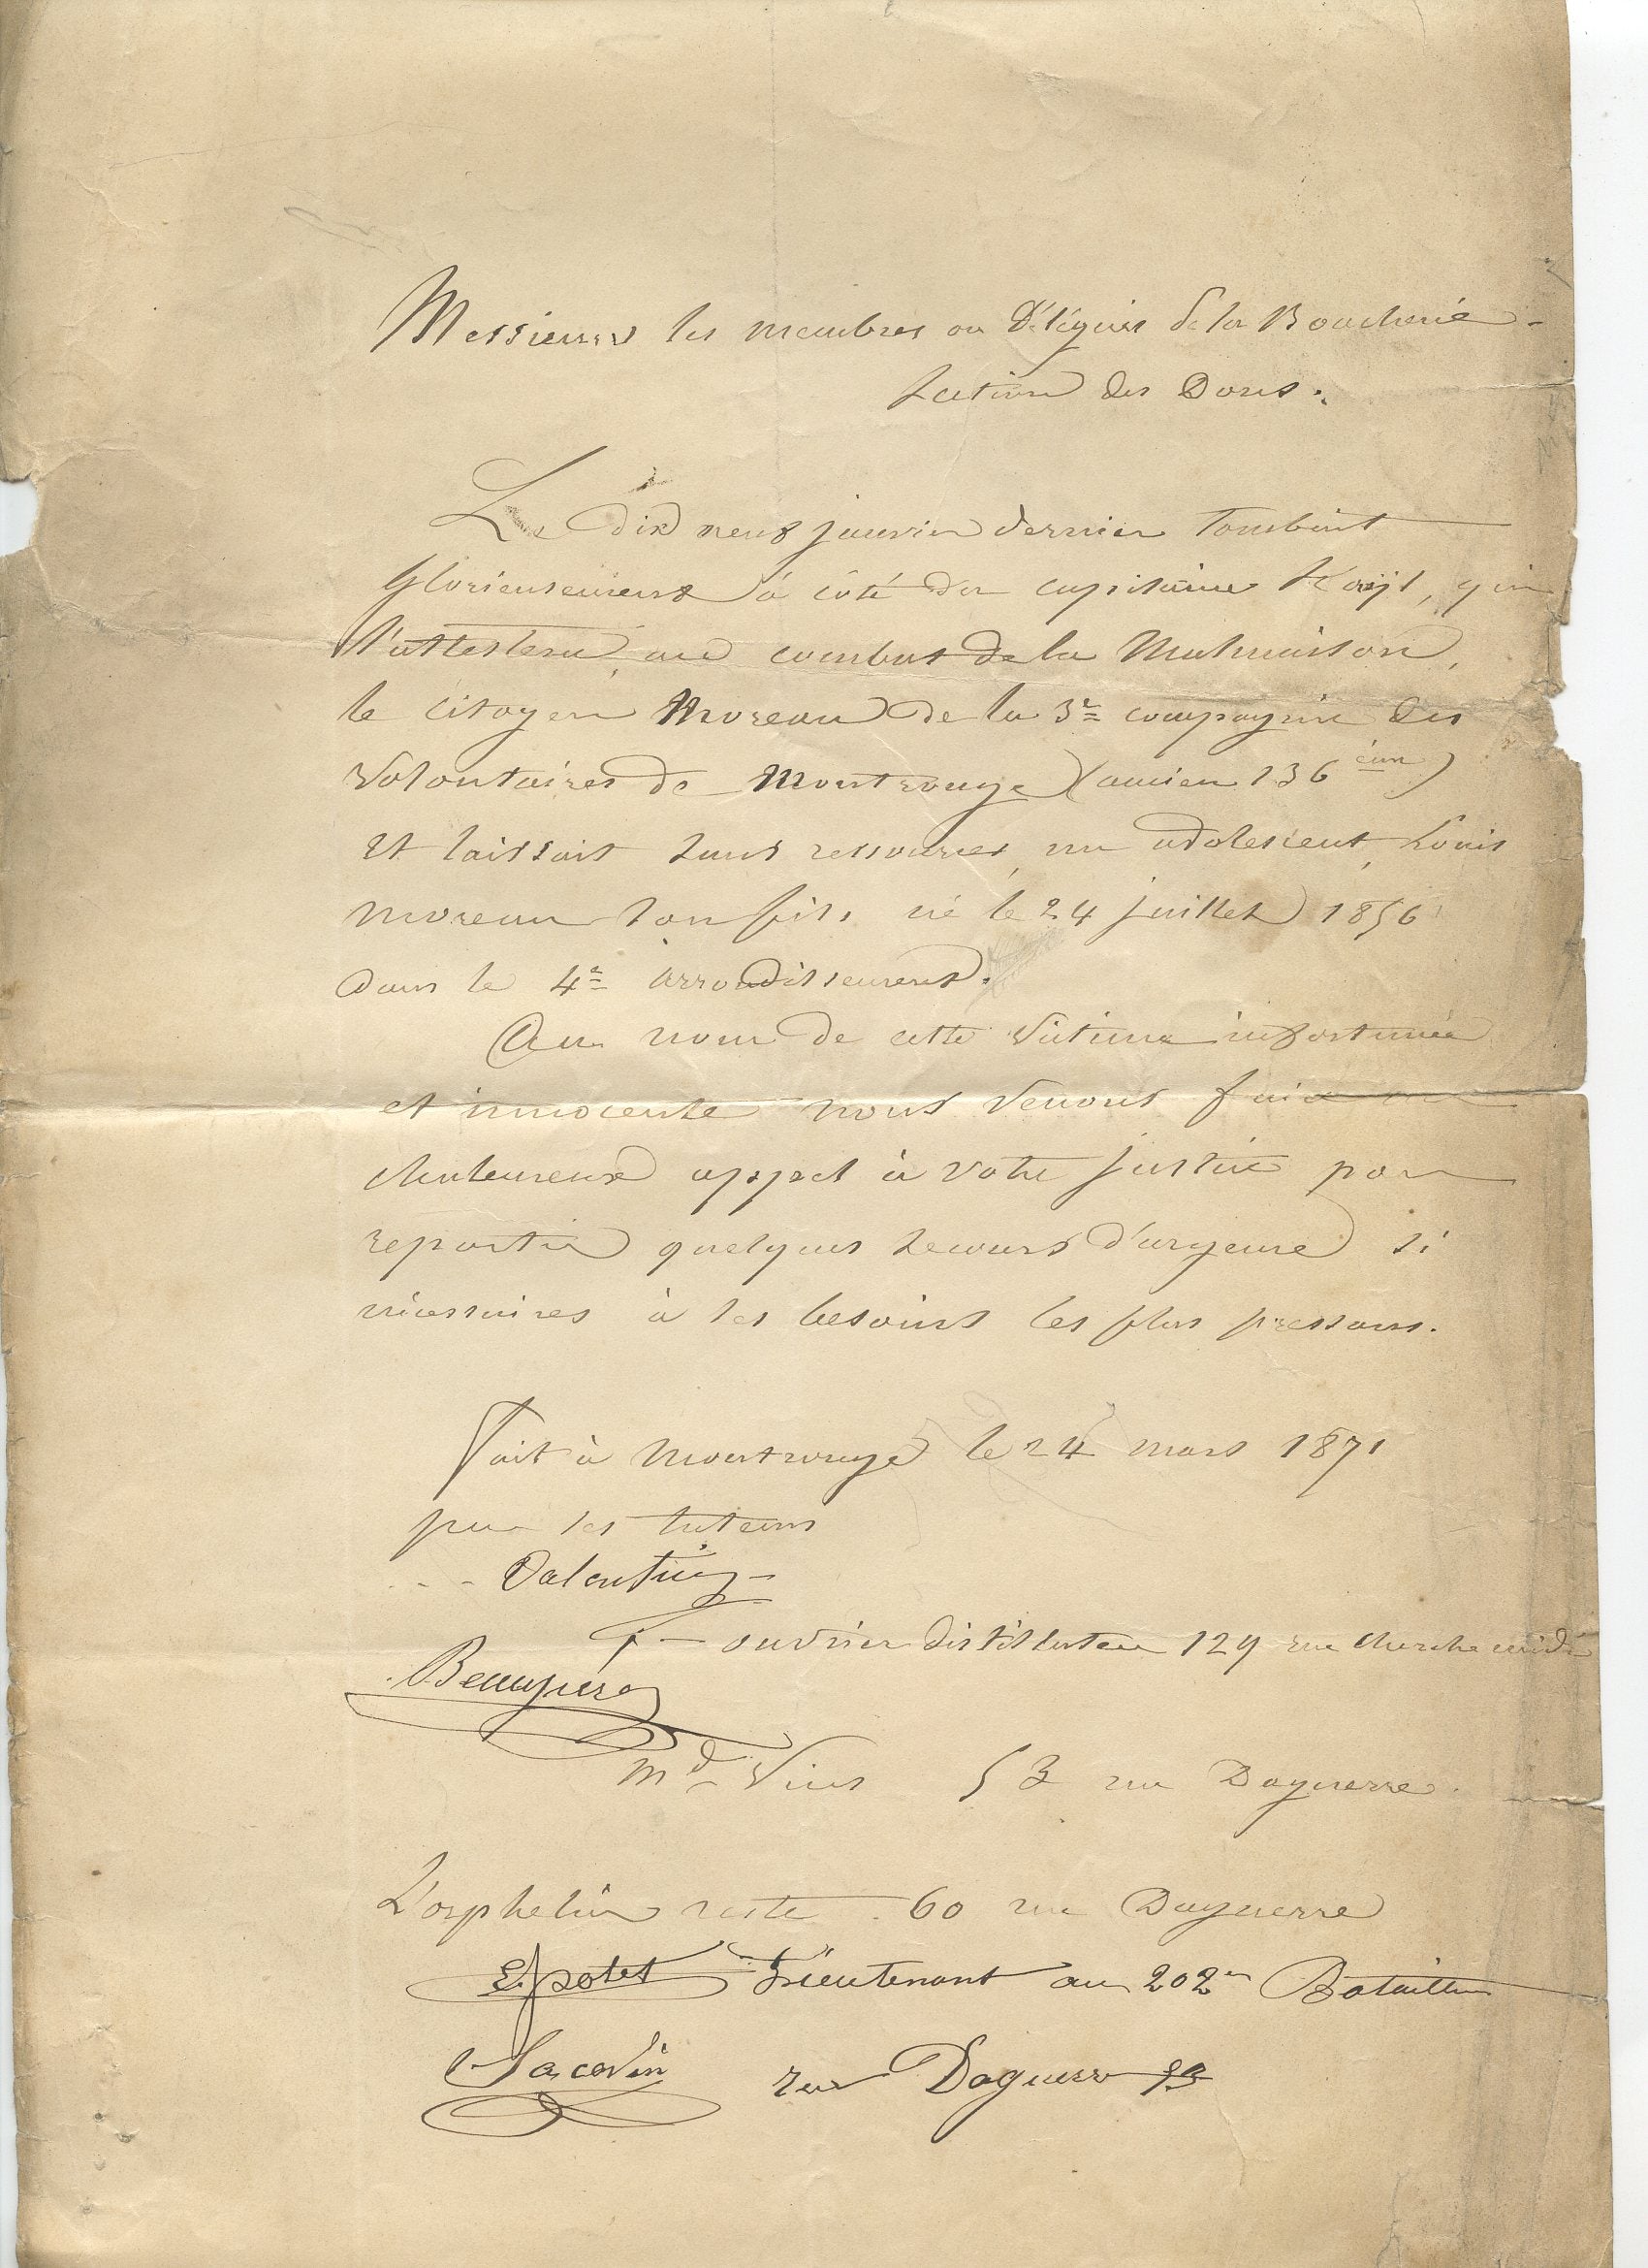 Messieurs les membres ou Délégués de la Boucherie -
Section des Dons.
Le dix neuf janvier dernier tombait
glorieusement à côté du capitaine qui
l'attestera, au combat de la Malmaison,
le citoyen Moreau de la 3e compagnie des
Volontaires de Montrouge (ancien 136 ème)
et laissait sans ressources, un adolescent, Louis
Moreau son fils, né le 24 juillet 1856
dans le 4e arrondissement.
Au nom de cette victime infortunée
et innocente nous venons faire un
chaleureux appel à votre justice pour
repartir quelques secours d'urgence si
nécessaires à ses besoins les plus pressans.
Fait à Montrouge le 24 mars 1871
pour les tuteurs
Valentin
ouvrier distillateur 129 rue cherche midi
Beaupère
Md Vins 53 rue Daguerre.
L'orphelin reste 60 rue Daguerre
E. potet Lieutenant au 202e Bataillon
rue Daguerre 53